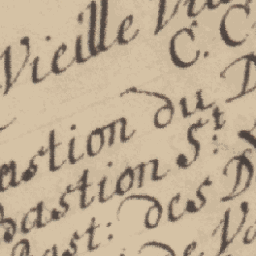 Vieille
C. C
astion du
Bastion S.t
Bast: des
de